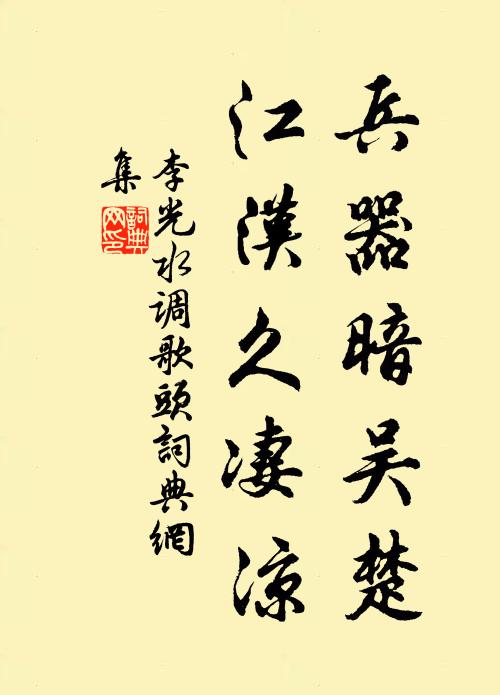 兵器暗吴楚
江漢久淒涼
李光水调歌頭詞典網
集
詞典
网印